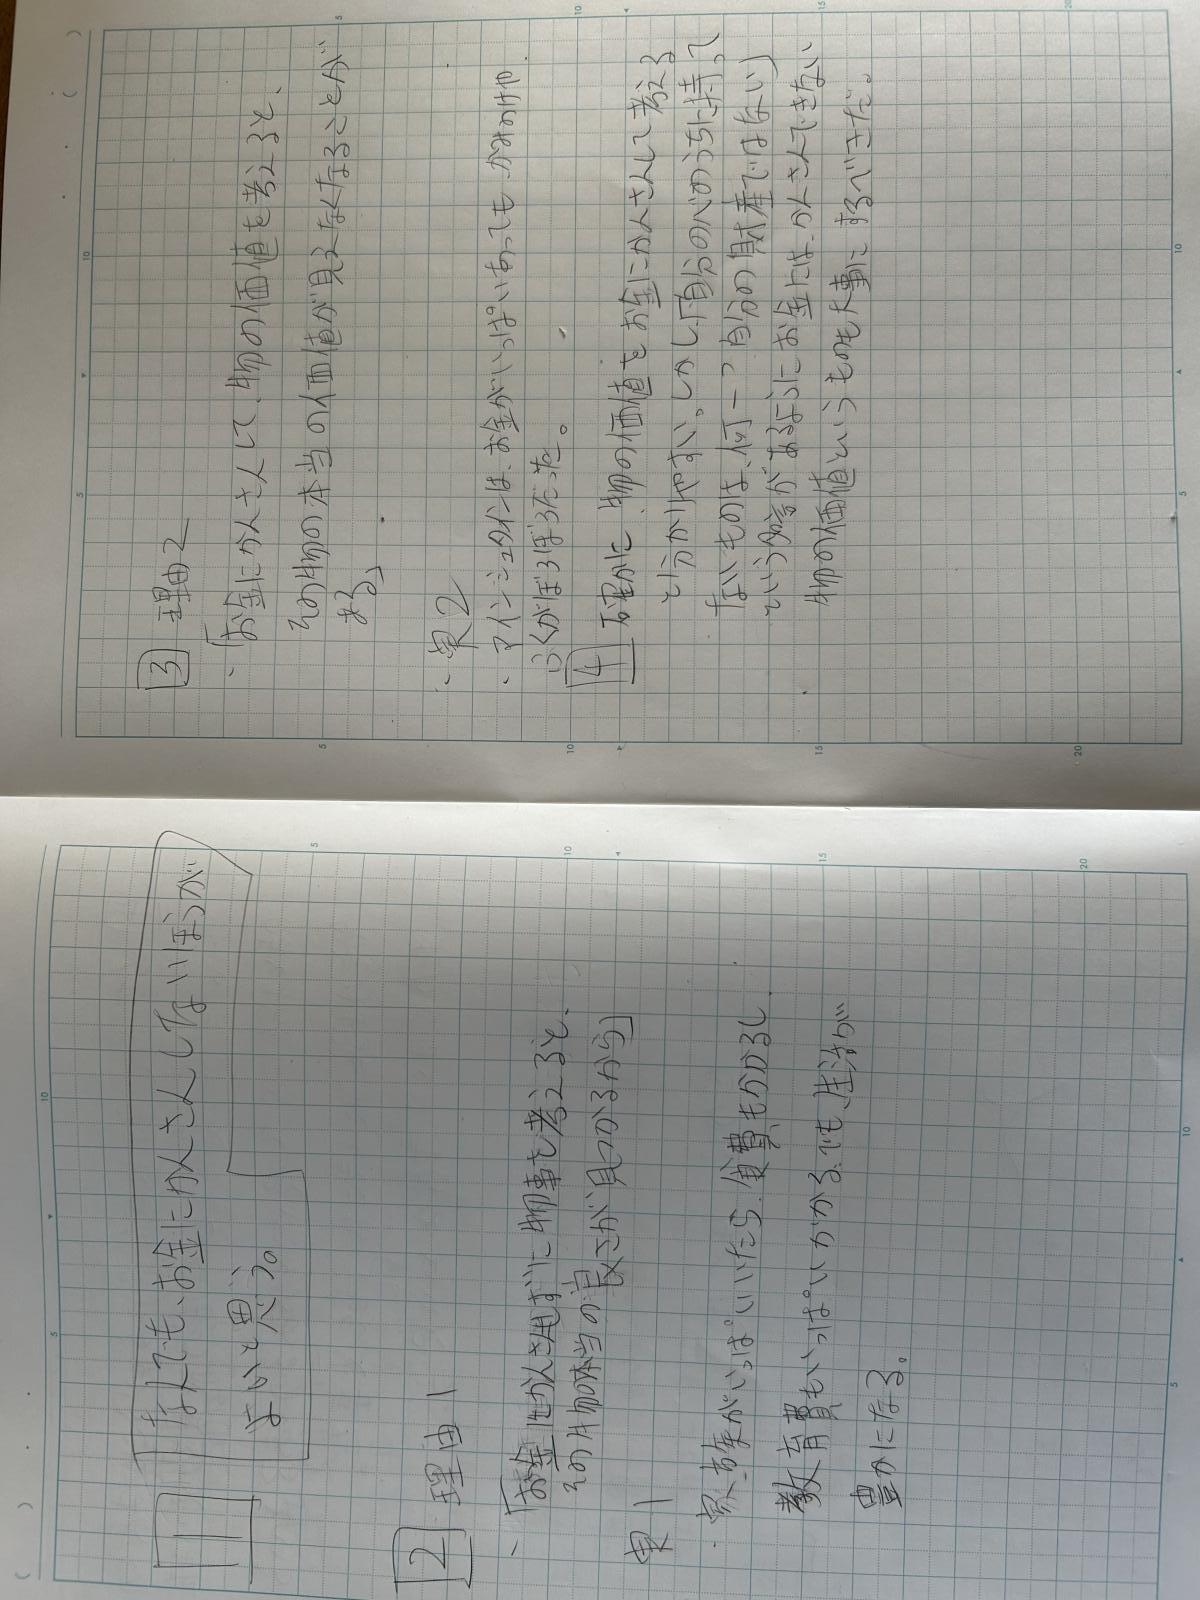 1
なんでも、お金にかんさんしないほうが
よいと思う。
2 理由1
・「お金にかんさんせずに物事を考えると、
その物の本当の良さが見つかるから」
実1
・家族がいっぱいいたら、食費もかかるし
教育費もいっぱいかかる。でも、生活が
豊かになる。
3 理由2
・「お金にかんさんして、物の価値を考えると、
その物の本当の価値が見えなくなることが
ある」
・実2
・アインシュタインは、お金がいっぱいあっても かみのけや
ふくがぼろぼろだった。
4 確かに、物の価値をお金にかんさんして考える
と分かりやすい。しかし「自分の心のうちに持って
ないものは、何一つ自分の財産ではない」
という名言があるようにお金には、かんさんできない
物の価値というものも大事にするべきだ。
5
10
15
20
5
10
15
20
5
10
5
10
5
10
15
20
5
10